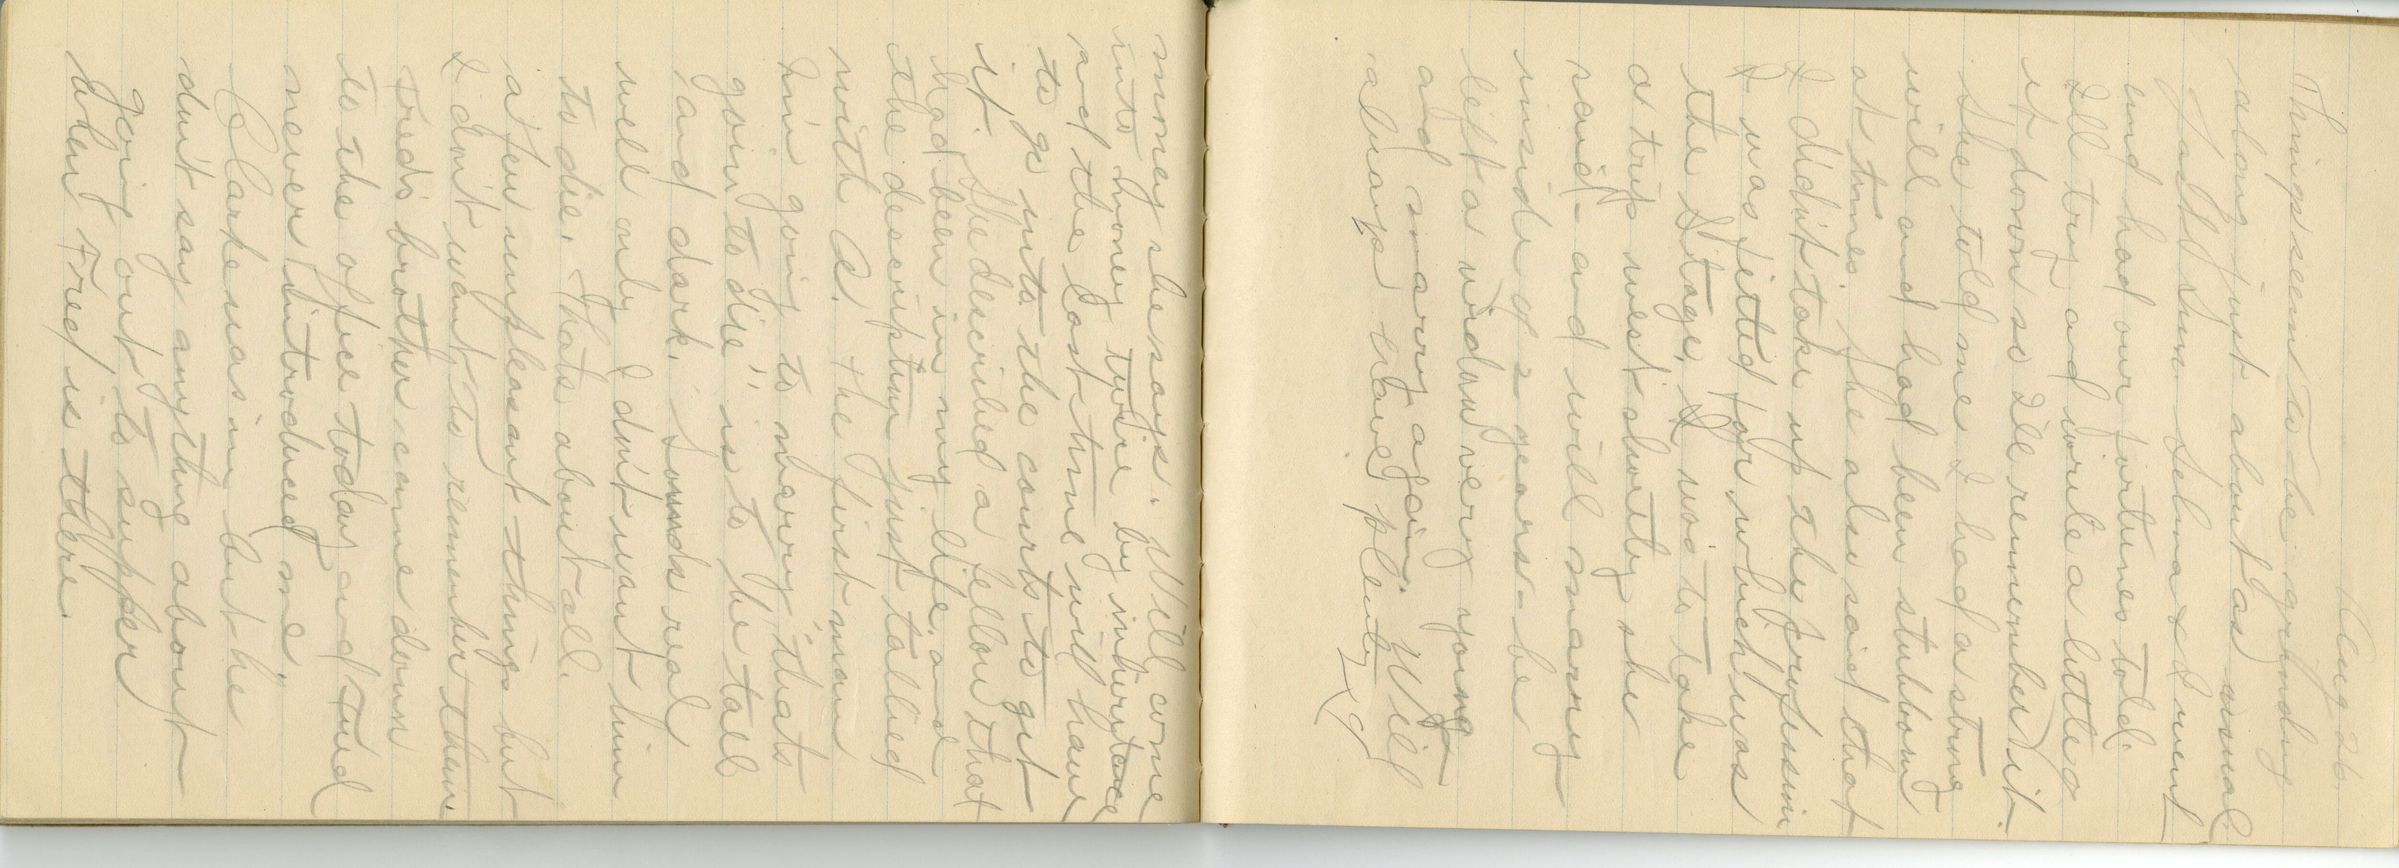 Aug 26.
Things seem to be grinding
along just about as usual.
Last Sun. Selma & I went
and had our fortunes told.
I'll try and write a little of
it down so I'll remember it.
She told me I had a strong
will and had been stubborn
at times. She also said that
I didn't take up the profession
I was fitted for which was
the Stage. I was to take
a trip west shortly she
said - and will marry
inside of 2 years - be
left a widow very young
and marry again. Will
always have plenty of
money she says. Will come
into money twice by inheritance
and the last time will have
to go into the courts to get
it. She described a fellow that
had been in my life and
the description just tallied
with A. the first man
him going to marry, "thats
goin to die", is to be tall
and dark. Sounds real
well only I don't want him
to die. Thats about all.
a few unpleasant things but
I don't want to remember them.
Fred's brother came down
to the office today and Fred
never introduced me.
Clarke was in but he
didn't say anything about
going out to supper
when Fred is there.